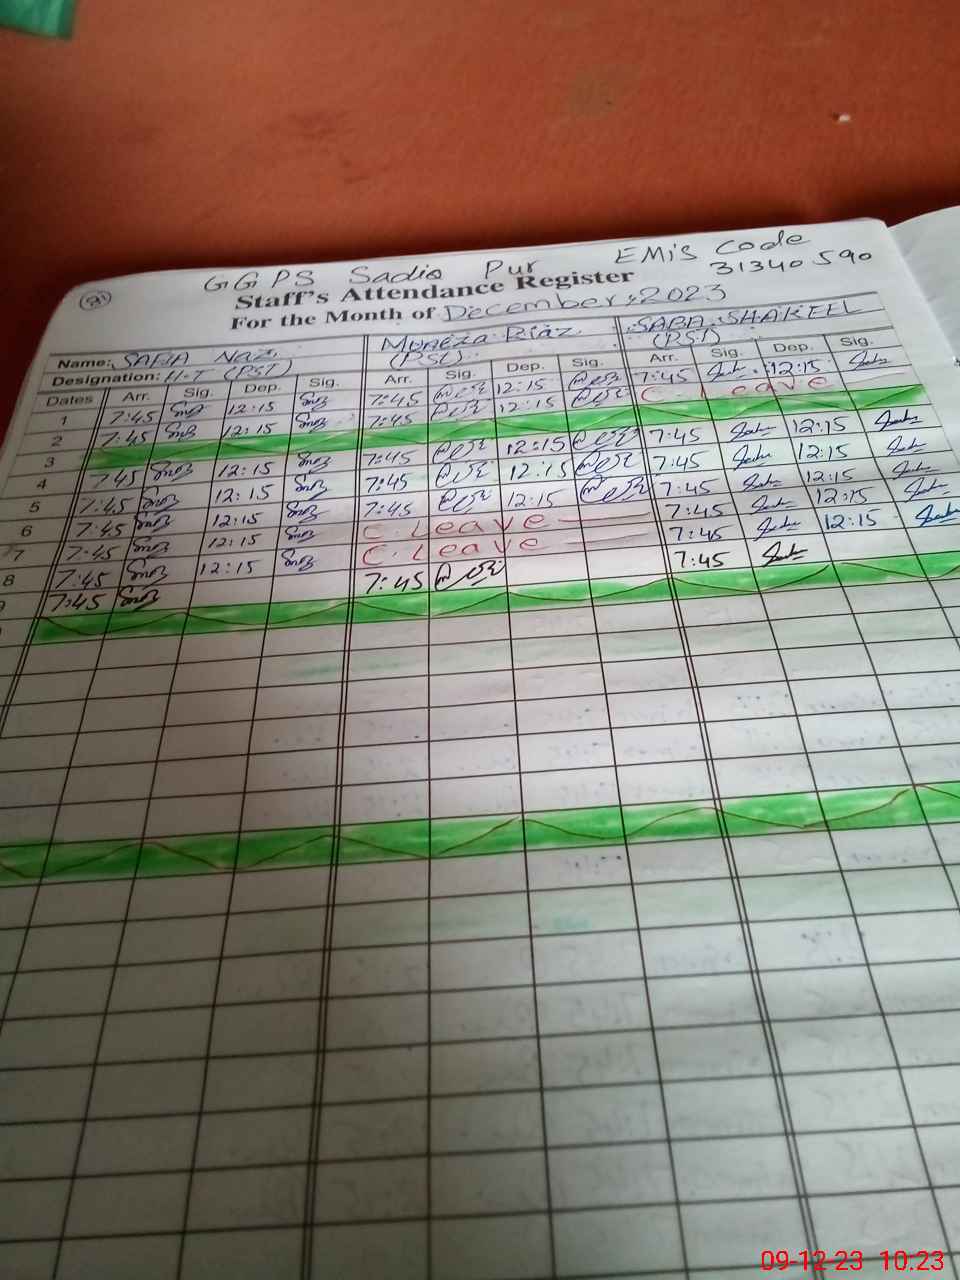 GGPS Sadiq Pur EMIS Code
31340590
Staff's Attendance Register
For the Month of December, 2023
Name: SAFIA Naz Muneza Riaz SABA SHAKEEL
Designation: H-T (PST) (PST) (PST)
Dates Arr. Sig. Dep. Sig. Arr. Sig. Dep. Sig. Arr. Sig. Dep. Sig.
1 7:45 12:15 7:45 12:15 7:45 12:15
2 7:45 12:15 7:45 12:15 C. Leave
3
4 7:45 12:15 7:45 12:15 7:45 12:15
5 7:45 12:15 7:45 12:15 7:45 12:15
6 7:45 12:15 7:45 12:15 7:45 12:15
7 7:45 12:15 C. Leave 7:45 12:15
8 7:45 12:15 C. Leave 7:45 12:15
7:45 7:45 7:45
09-12-23 10:23